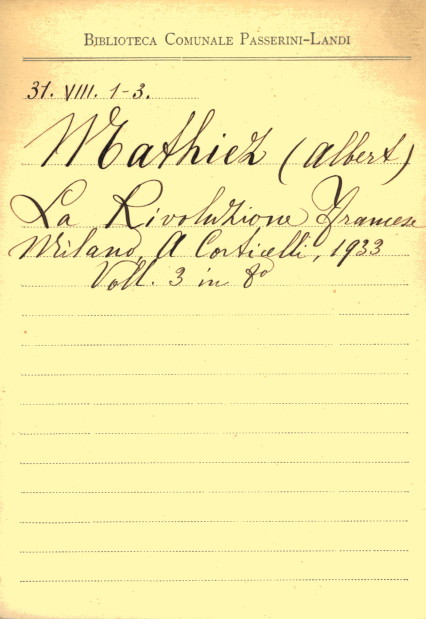 BIBLIOTECA COMUNALE PASSERINI-LANDI
31. VIII. 1-3.
Mathiez (Albert)
La Rivoluzione Francese
Milano, A Corticelli, 1933
Voll. 3 in 8°